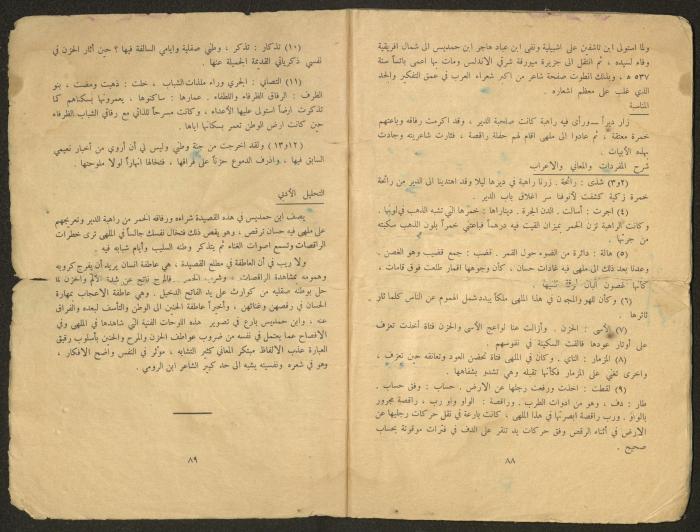 ولما استولى ابن تاشفين على اشبيلية ونفى ابن عباد هاجر ابن حمديس الى شمال افريقية
وفاء لسيده ، ثم انتقل الى جزيرة ميورقة شرقي الاندلس ومات بها اعمى بائساً سنة
٥٣٧ ه ، وبذلك انطوت صفحة شاعر من اكبر شعراء العرب في عمق التفكير والجد
الذي غلب على معظم اشعاره .
المناسبة
زار ديراً — ورأى فيه راهبة كانت صاحبة الدير ، وقد اكرمت رفاقه وباعتهم
خمرة معتقة ، ثم عادوا الى ملهى اقام لهم حفلة راقصة ، فثارت شاعريته وجادت
بهذه الأبيات .
شرح المفردات والمعاني والاعراب
(٢و٣) شذى : رائحة . زرنا راهبة في ديرها ليلا وقد اهتدينا الى الدير من رائحة
خمرة زكية كشفت لأنوفنا سر اغلاق باب الدير .
(٤) اجرت : أسالت . الدن الجرة . دينارها : خمرها التي تشبه الذهب في لونها .
وكانت الراهبة تزن الخمر بميزان القيت فيه درهماً فباعتني خمراً بلون الذهب سكبته
من جرتها .
(٥) هالة : دائرة من الضوء حول القمر . قضب : جمع قضيب وهو الغصن .
وعدنا بعد ذلك الى ملهى فيه غادات حسان ، كأن وجوهها اقمار طلعت فوق قامات ،
كأنها غصون البان لرقة تثنيها
(٦) وكأن للهو والمجون في هذا الملهى ملكاً يبدد شمل الهموم عن الناس كلما ثار
ثائرها .
(٧) الأسى : الحزن . وأزالت عنا لواعج الأسى والحزن فتاة أخذت تعزف
على أوتار عودها فالقت السكينة في نفوسهم .
(٨) المزمار : الناي . وكان في الملهى فتاة تحتضن العود وتعانقه حين تعزف ،
واخرى تغني على المزمار فكأنها تقبله وهي تشدو بشفاهها .
(٩) لقطت : اخذت ورفعت رجلها عن الارض . حساب : وفق حساب .
طار : دف ، وهو من ادوات الطرب . وراقصة : الواو واو رب ، راقصة مجرور
بالواو . ورب راقصة ابصرتها في هذا الملهى ، كانت بارعة في نقل حركات رجليها عن
الارض في أثناء الرقص وفق حركات يد تنقر على الدف في فترات موقوتة بحساب
صحيح .
٨٨
(١٠) تذكار : تذكر ، وطني صقلية وايامي السالفة فيها ؟ حين أثار الحزن في
نفسي ذكرياتي القديمة الجميلة عنها .
(١١) التصابي : الجري وراء ملذات الشباب ، خلت : ذهبت ومضت ، بنو
الظرف : الرفاق الظرفاء واللطفاء . عمارها : ساكنوها ، يعمرونها بسكناهم كما
تذكرت ارضاً استولى عليها الأعداء ، وكانت مسرحاً للذاتي مع رفاقي الشباب الظرفاء
حين كانت ارض الوطن تعمر بسكانها اياها .
(١٢و١٣) ولقد اخرجت من جنة وطني وليس لي أن أروي من أخبار نعيمي
السابق فيها ، واذرف الدموع حزناً على فراقها ، فتخالها انهاراً لولا ملوحتها .
التحليل الأدبي
يصف ابن حمديس في هذه القصيدة شراءه ورفاقه الخمر من راهبة الدير وتعريجهم
على ملهى فيه حسان ترقص ، وهو يقص ذلك فتخال نفسك جالساً في الملهى ترى خطرات
الراقصات وتسمع اصوات الغناء ثم يتذكر وطنه السليب وأيام شبابه فيه .
ولا ريب في أن العاطفة في مطلع القصيدة ، هي عاطفة انسان يريد أن يفرج كروبه
وهمومه بمشاهدة الراقصات ، وشرب الخمر . فالمرح ناتج عن شدة الالم والحزن لما
حل بوطنه صقلية من كوارث على يد الفاتح الدخيل . وهي عاطفة الاعجاب بمهارة
الحسان في رقصهن وغنائهن ، وأخيراً عاطفة الحنين الى الوطن والتأسف لبعده والفراق
عنه ، وابن حمديس بارع في تصوير هذه اللوحات الفنية التي شاهدها في الملهى وفي
الافصاح عما يعتمل في نفسه من ضروب عواطف الحزن والمرح والحنين بأسلوب رقيق
العبارة عذب الالفاظ مبتكر المعاني كثير التشابه ، مؤثر في النفس واضح الافكار ،
وهو في شعره ونفسيته يشبه الى حد كبير الشاعر ابن الرومي .
٨٩